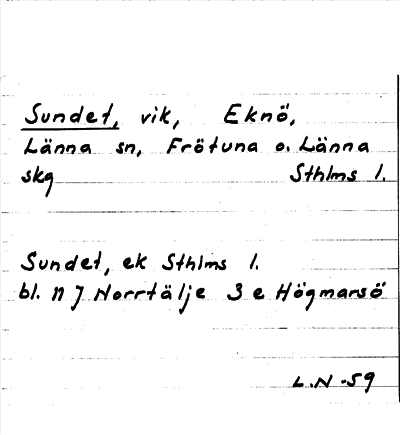 Sundet, vik, Eknö,
Länna sn, Frötuna o. Länna
skg Sthlms l.
Sundet, ek Sthlms l.
bl. 11 J Norrtälje 3 e Högmarsö
L.N-59